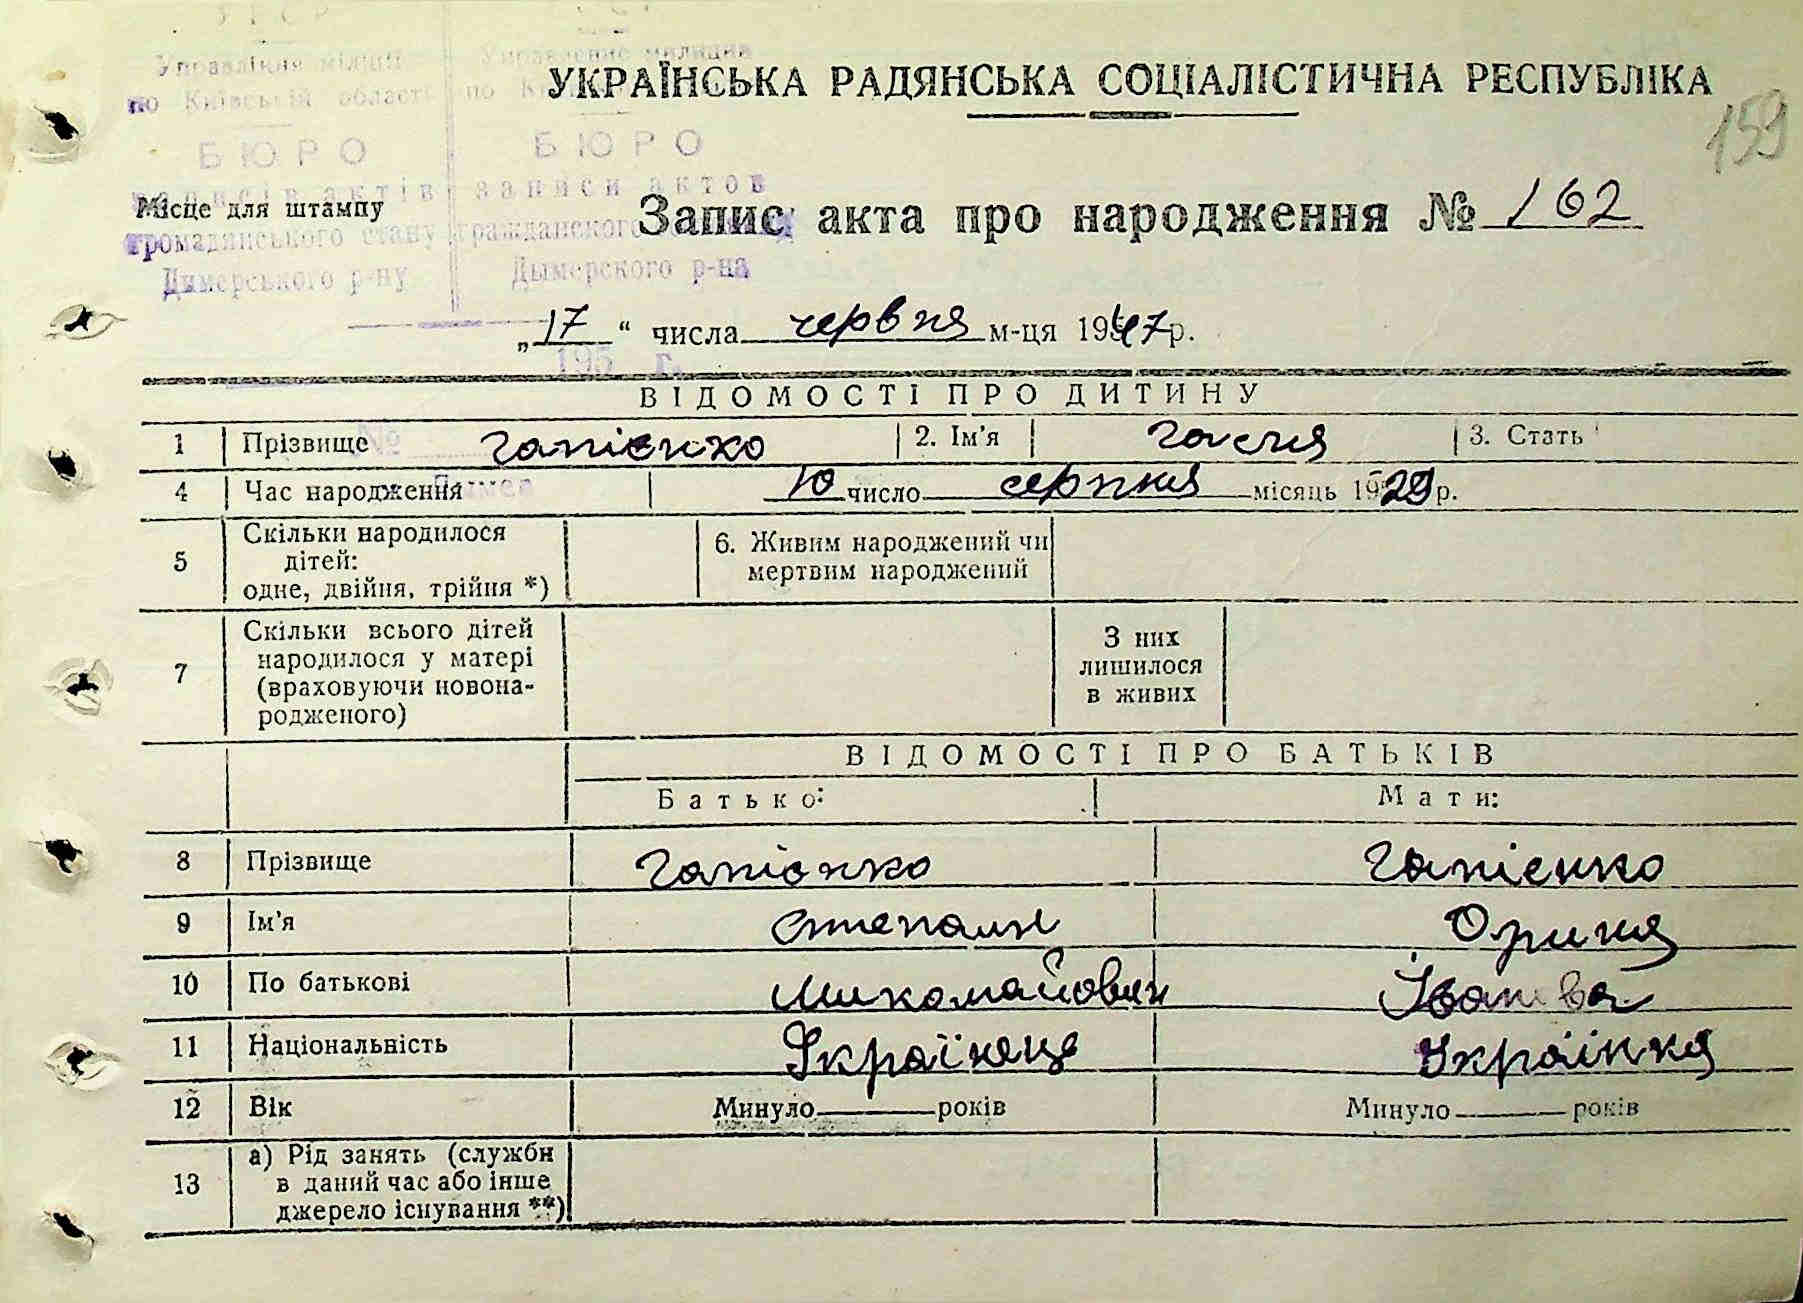 УРСР
Управління міліції
по Київській області
БЮРО
записів актів
громадянського стану
Димерського р-ну
Управление милиции
по
БЮРО
записи актов
гражданского
Дымерского р-на
195 г.
№
Дымер
УКРАЇНСЬКА РАДЯНСЬКА СОЦІАЛІСТИЧНА РЕСПУБЛІКА
159
Місце для штампу
Запис акта про народження № 162
„17“ числа червня м-ця 1947 р.
ВІДОМОСТІ ПРО ДИТИНУ
1 Прізвище Гапієнко 2. Ім'я Галя 3. Стать
4 Час народження 10 число серпня місяць 1929 р.
5 Скільки народилося дітей: одне, двійня, трійня *) 6. Живим народжений чи мертвим народжений
7 Скільки всього дітей народилося у матері (враховуючи новонародженого) З них лишилося в живих
ВІДОМОСТІ ПРО БАТЬКІВ
Батько: Мати:
8 Прізвище Гапієнко Гапієнко
9 Ім'я Степан Орина
10 По батькові Миколайович Іванівна
11 Національність Українець Українка
12 Вік Минуло років Минуло років
13 а) Рід занять (служби в даний час або інше джерело існування **)